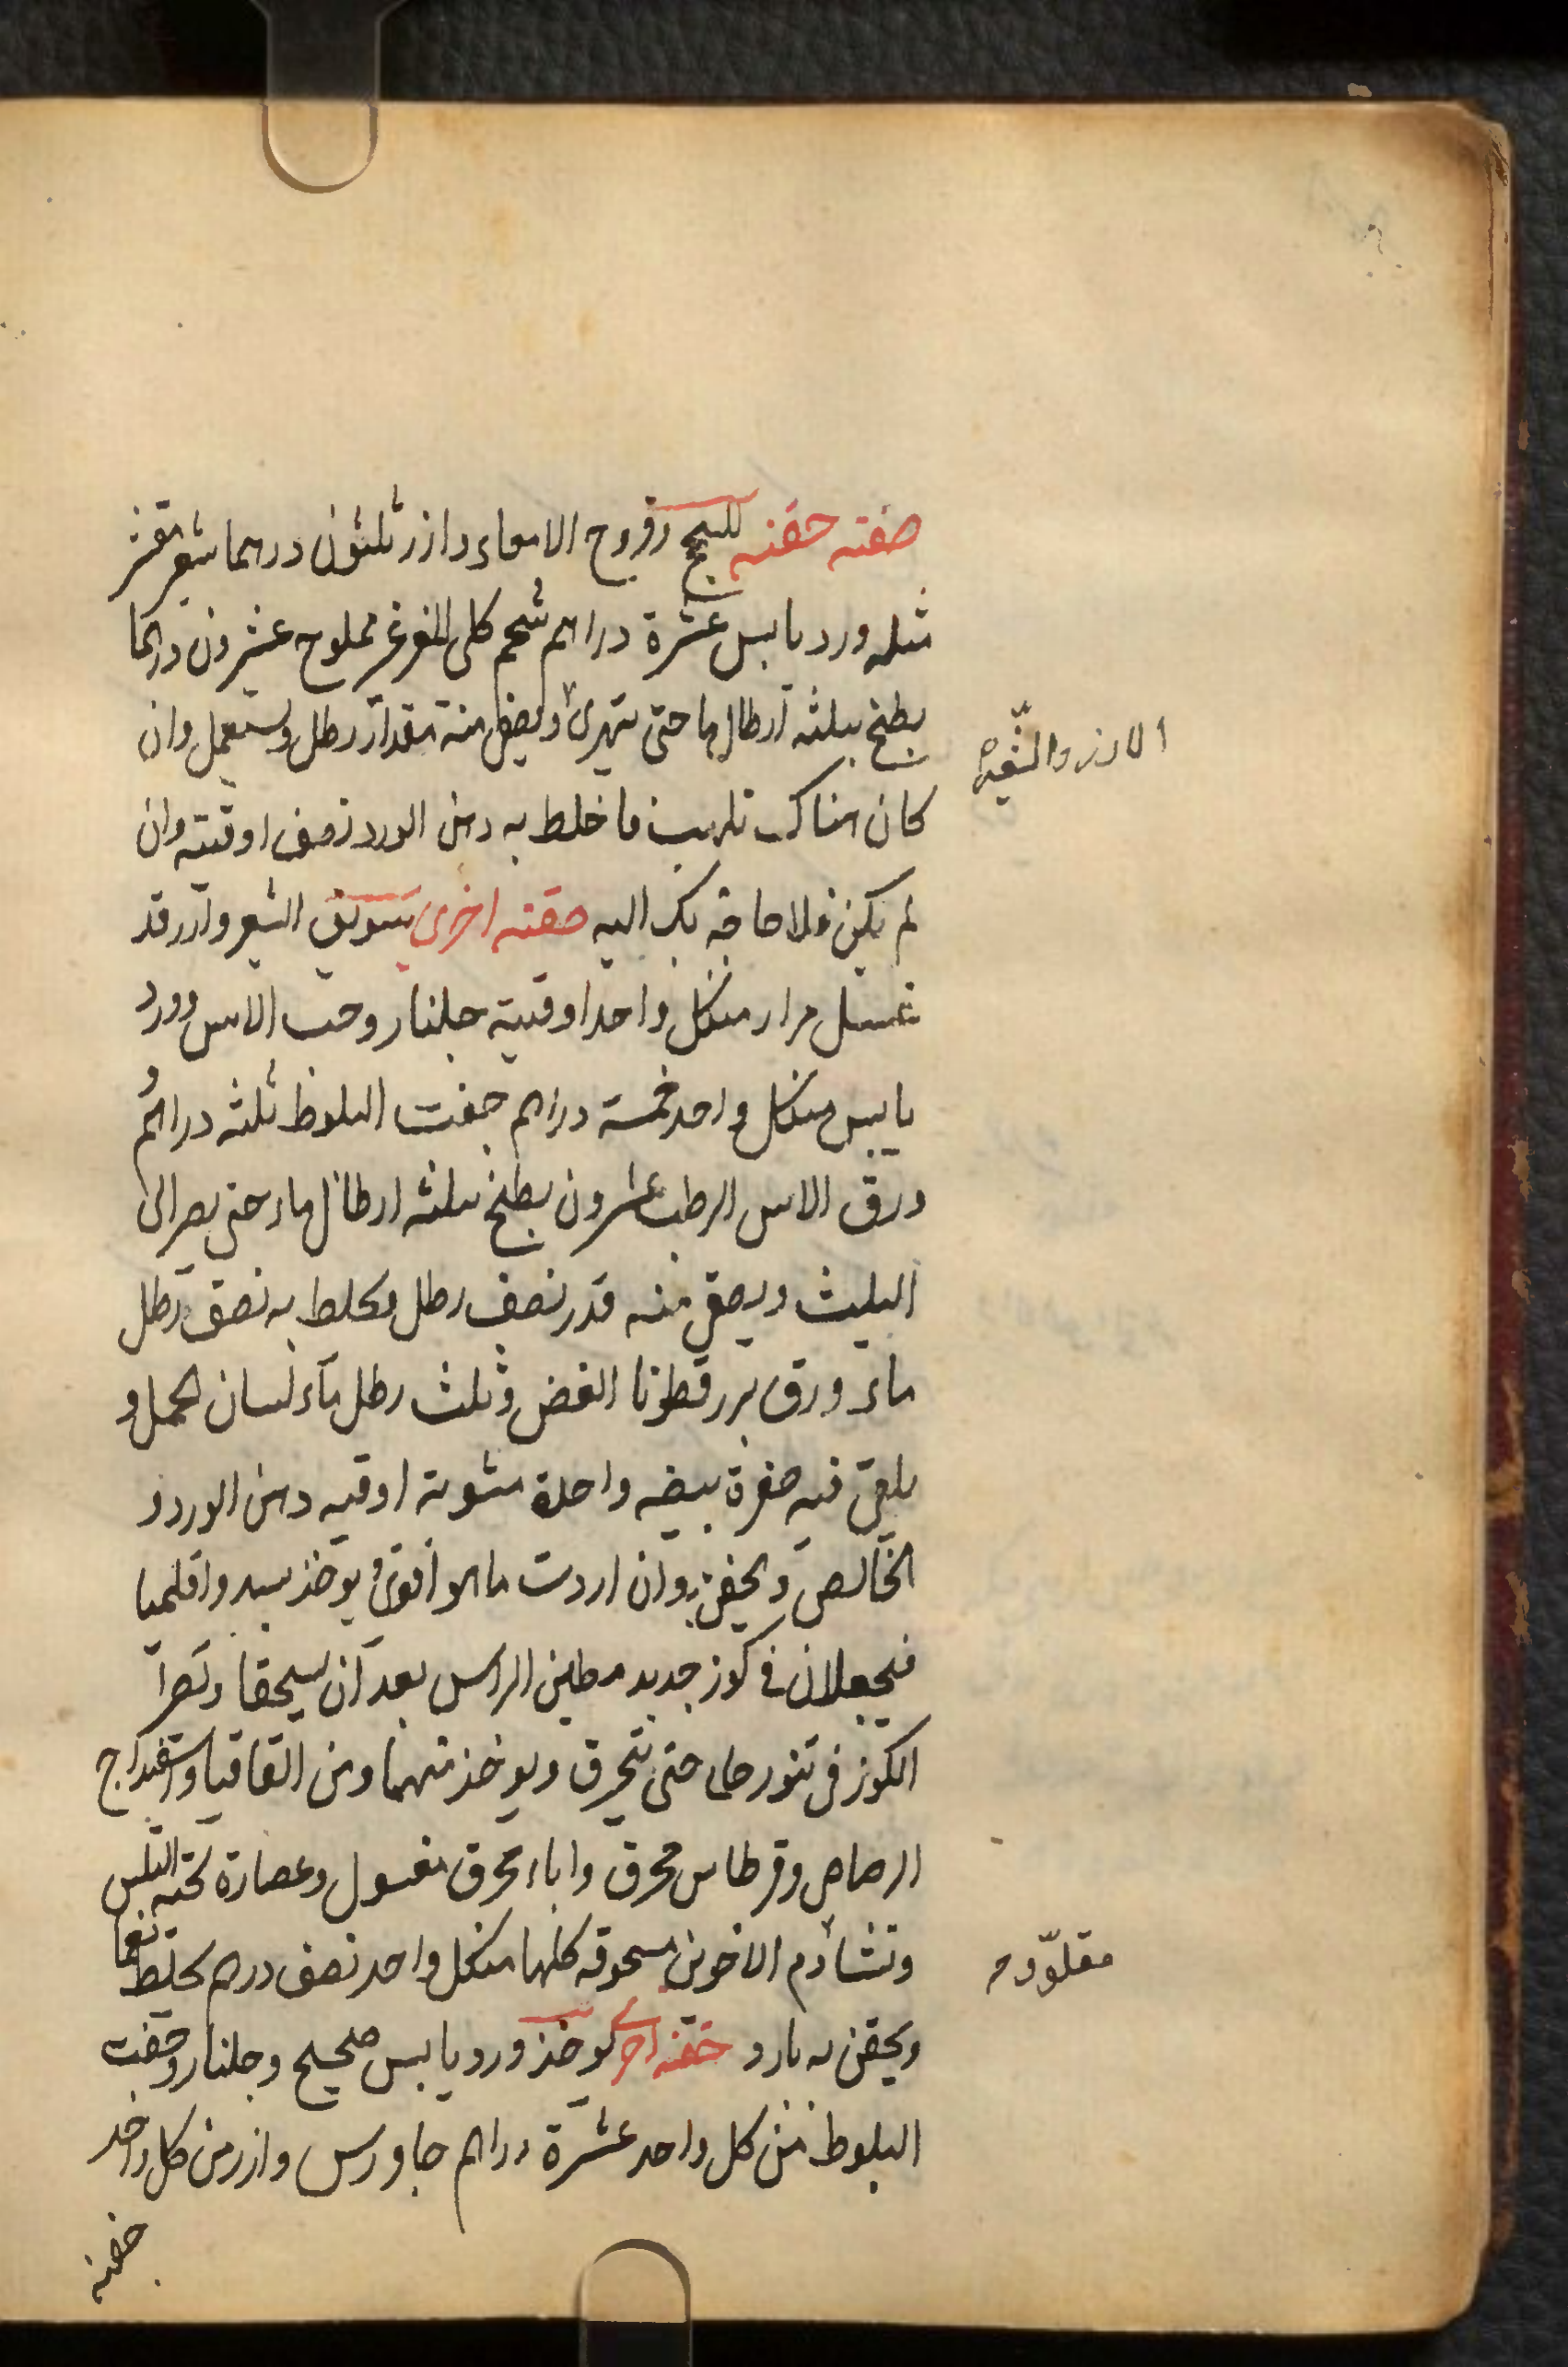 صفته حقنه للسحج وقروح الامعاء دارز ثلثون درهما شعير مقشر
مثله ورد يابس عشرة دراهم شحم كلى الماعز مملوح عشرون درهما
يطبخ بثلثه ارطال ما حتى يتهرى ويصفى منه مقدار رطل ويستعمل وان
الارز والشعير
كان هناك تلهب فاخلط به دهن الورد نصف اوقيه وان
لم يكن فلا حاجه بك اليه حقنه اخرى سويق الشعير وارز قد
غسل مرار من كل واحد اوقية جلنار وحب الاس وورد
يابس من كل واحد خمسة دراهم جفت البلوط ثلثه دراهم
ورق الاس الرطب عشرون يطبخ بثلثه ارطال ماء حتى يصير الى
الثلث ويصفى منه قدر نصف رطل ويخلط به نصف رطل
ماء ورق بزر قطونا الغض وثلث رطل ماء لسان الحمل و
يلقى فيه صفرة بيضه واحدة مشوية اوقيه دهن الورد
الخالص ويحقن به وان اردت ما هو اقوى يوخذ واقليميا
فيجعلان في كوز جديد مطين الراس بعد ان يسحقا ويصير
الكوز في تنور حار حتى يحترق ويوخذ منهما ومن القاقيا واسفيداج
الرصاص وقرطاس محرق محرق مغسول وعصارة لحية التيس
ونشا ودم الاخوين مسحوقه كلها من كل واحد نصف درهم يخلط نعما
ويحقن به بارد حقنه اخرى يوخذ ورد يابس صحيح وجلنار وجفت
البلوط من كل واحد عشرة دراهم جاورس وارز من كل واحد
حفنه